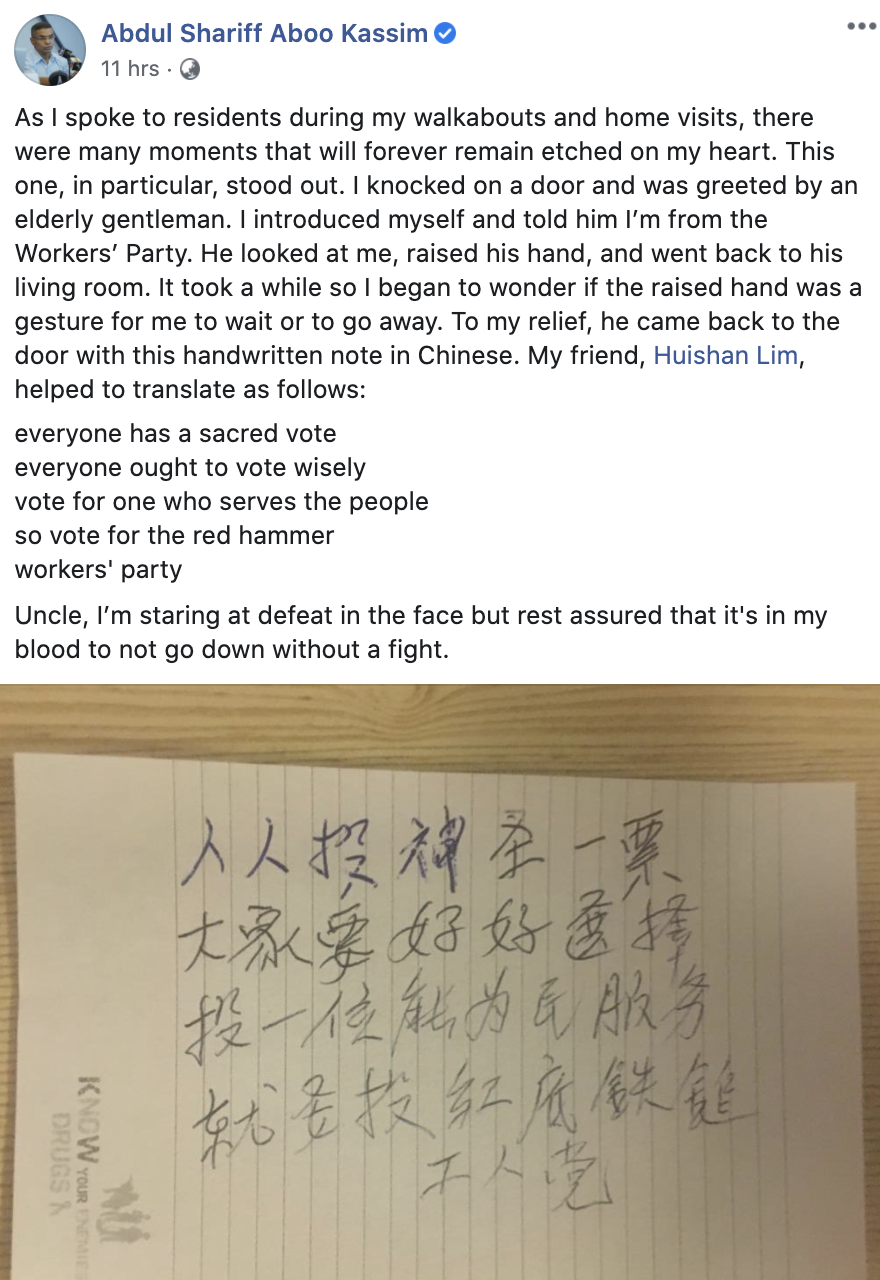 Abdul Shariff Aboo Kassim
11 hrs ·
As I spoke to residents during my walkabouts and home visits, there
were many moments that will forever remain etched on my heart. This
one, in particular, stood out. I knocked on a door and was greeted by an
elderly gentleman. I introduced myself and told him I’m from the
Workers’ Party. He looked at me, raised his hand, and went back to his
living room. It took a while so I began to wonder if the raised hand was a
gesture for me to wait or to go away. To my relief, he came back to the
door with this handwritten note in Chinese. My friend, Huishan Lim,
helped to translate as follows:
everyone has a sacred vote
everyone ought to vote wisely
vote for one who serves the people
so vote for the red hammer
workers' party
Uncle, I’m staring at defeat in the face but rest assured that it's in my
blood to not go down without a fight.
人人投神圣一票
大家要好好選擇
投一位能为民服务
就去投紅底鉄鎚
工人党
KNOW YOUR
DRUGS